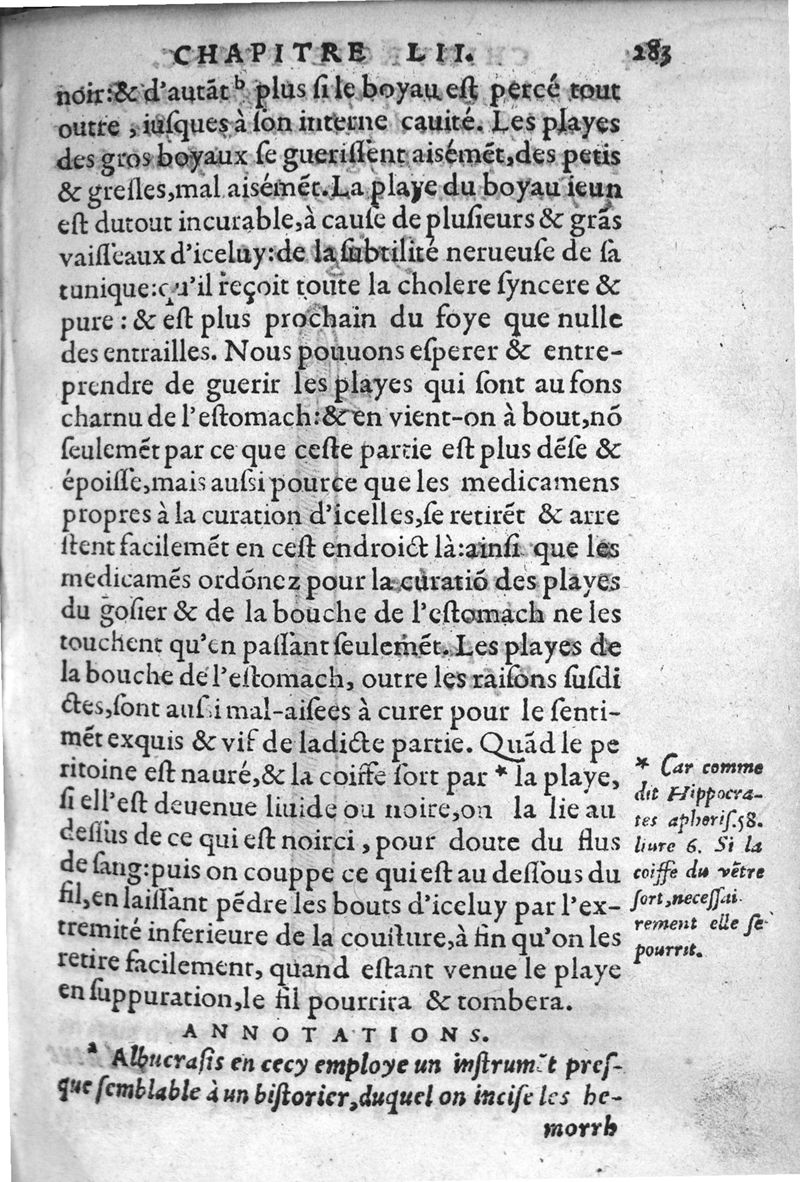 CHAPITRE LII. 283
noir:& d'autãt ᵇ plus ſi le boyau eſt percé tout
outre, iuſques à ſon interne cauité. Les playes
des gros boyaux ſe gueriſſent aisémẽt, des petis
& greſles, mal aisémẽt. La playe du boyau ieun
eſt dutout incurable, à cauſe de pluſieurs & grãs
vaiſſeaux d'iceluy: de la ſubtilité nerueuſe de ſa
tunique: qu'il reçoit toute la cholere ſyncere &
pure: & eſt plus prochain du foye que nulle
des entrailles. Nous pouuons eſperer & entre-
prendre de guerir les playes qui ſont au fons
charnu de l'eſtomach: & en vient-on à bout, nõ
ſeulemẽt par ce que ceſte partie eſt plus dẽſe &
époiſſe, mais auſsi pource que les medicamens
propres à la curation d'icelles, ſe retirẽt & arre
ſtent facilemẽt en ceſt endroict là: ainſi que les
medicamẽs ordõnez pour la curatiõ des playes
du goſier & de la bouche de l'eſtomach ne les
touchent qu'en paſſant ſeulemẽt. Les playes de
la bouche de l'eſtomach, outre les raiſons ſuſdi
ctes, ſont auſsi mal-aiſees à curer pour le ſenti-
mẽt exquis & vif de ladicte partie. Quãd le pe
ritoine eſt nauré, & la coiffe ſort par * la playe,
ſi ell'eſt deuenue liuide ou noire, on la lie au
deſſus de ce qui eſt noirci, pour doute du flus
de ſang: puis on couppe ce qui eſt au deſſous du
fil, en laiſſant pẽdre les bouts d'iceluy par l'ex-
tremité inferieure de la couſture, à fin qu'on les
retire facilement, quand eſtant venue le playe
en ſuppuration, le fil pourrira & tombera.
* Car comme
dit Hippocra-
tes aphoriſ. 58.
liure 6. Si la
coiffe du vẽtre
ſort, neceſſai-
rement elle ſe
pourrit.
ANNOTATIONS.
ᵃ Albucraſis en cecy employe un inſtrumẽt preſ-
que ſemblable à un biſtorier, duquel on inciſe les he-
morrh